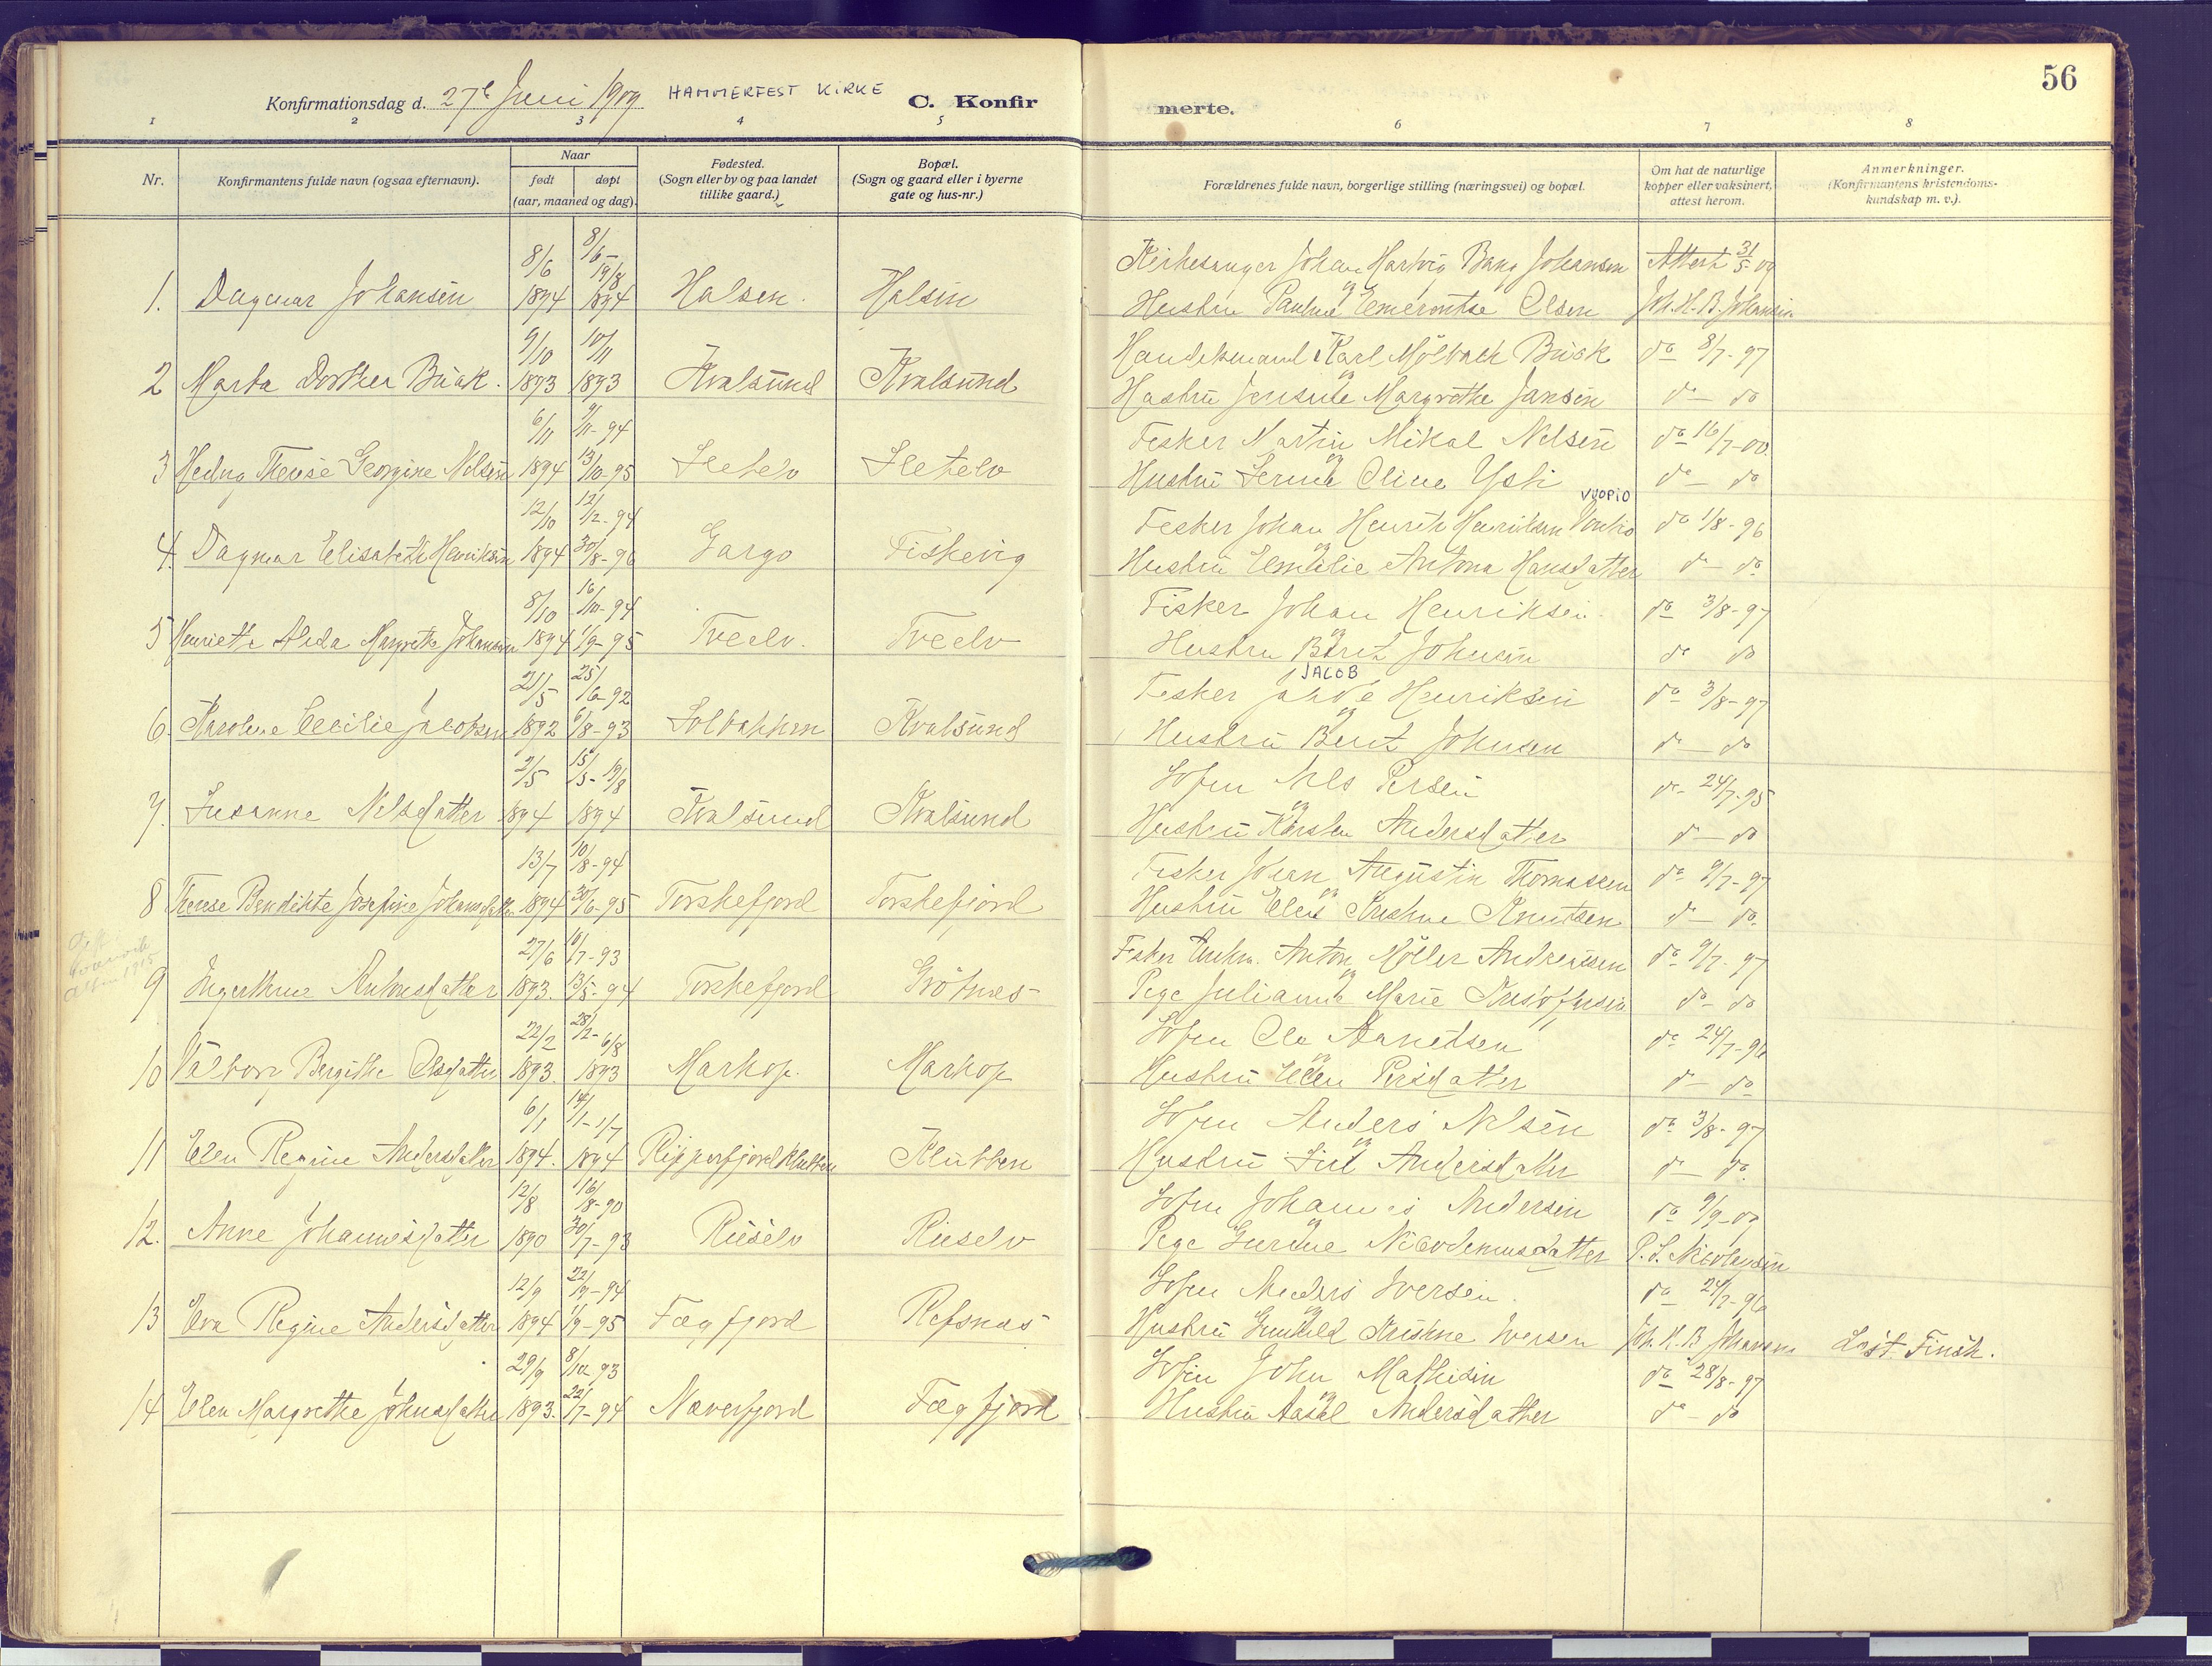 56
Konfirmationsdag d. 27de Juni 1909 HAMMERFEST KIRKE C. Konfirmerte.
1 2 3 4 5 6 7 8
Nr.
Konfirmantens fulde navn (ogsaa efternavn).
Naar
født
døpt
(aar, maaned og dag).
Fødested.
(Sogn eller by og paa landet
tillike gaard.)
Bopæl.
(Sogn og gaard eller i byerne
gate og hus-nr.)
Forældrenes fulde navn, borgerlige stilling (næringsvei) og bopæl.
Om hat de naturlige
kopper eller vaksinert,
attest herom.
Anmerkninger.
(Konfirmantens kristendoms-
kundskap m. v.).
8/6 8/6- 19/8 Kirkesanger Johan Hartvig Bang Johansen Attest 31/5 09
1. Dagmar Johansen 1894 1894 Halsen. Halsen og Hustru Pauline Emerentse Olsen Joh. H. B. Johansen
9/10 10/11 Handelsmand Karl Mölbach Buck do 8/7-97
2 Marta Dorthea Buck. 1893 1893 Kvalsund Kvalsund og Hustru Jensine Margrethe Jansen do - do
6/11 9/11-94 Fisker Martin Mikal Nilsen do 16/7-00.
3 Hedvig Therese Georgine Nilsen 1894 13/10-95 Sletelv Sletelv og Hustru Oline do - do
VUOPIO
12/10 12/12-94 Fisker Johan Henrik Henriksen do 1/8-96
4. Dagmar Elisabeth Henriksen 1894 30/8-96 Gargo Fiskevig og Hustru Emilie Antona Hansdatter do - do.
8/10 16/10-94 Fisker Johan Henriksen. do 3/8-97
5 Henriette Alida Margrethe Johansen 1894 1/9-95 Tveelv. Tveelv og Hustru Berit Johnsen do do
JACOB
21/5 25/6-92 Fisker Henriksen do 3/8-97
6. Karoline Cecilie Jacobsen 1892 6/8-93 Solbakken Kvalsund og Hustru Berit Johnsen do - do
2/5 15/5-19/8 Sofin Nils Persen do- 24/7-95
7. Susanne Nilsdatter 1894 1894 Kvalsund Kvalsund og Hustru Kirsten Andersdatter do - do
13/7 10/8-94 Fisker Johan Augustin Thomassen do 9/7-97
8 Therese Bendikte Josefine Johansdatter 1894 30/6-95 Torskefjord Torskefjord og Hustru Elen Kristine Knutsen do - do.
27/6 16/7-93 Fisker Anton Möller Andreassen do 9/7-97
9 Ingertrine Antonsdatter 1893. 13/5-94 Torskefjord Grötnes og Pige Julianne Marie Kristoffersen do - do
22/2 28/2-6/8 Sofin Ole Aanetsen do 24/7-96
10 Valborg Bergithe Olsdatter 1893. 1893 Markop. Markop og Hustru Elen Persdatter do - do
6/1 14/1-1/7 Sofin Anders Nilsen do 3/8-97
11 Elen Regine Andersdatter 1894. 1894 Ripperfjord Klubben Klubben og Hustru Siri Andersdatter do - do.
12/8 16/8-90 Sofin Johannes Andersen do 9/9-00
12. Anne Johannesdatter 1890 30/7-93 Rieselv Rieselv og Pige Gurine Nicodemusdatter P. S. Nicolaysen
12/9 22/9-94 Sofin Anders Iversen. do 24/7-96
13 Eva Regine Andersdatter 1894 1/9-95 Fægfjord Refsnæs og Hustru Gunhild Kristine Iversen Joh. H. B. Johansen Læst Finsk.
29/9 8/10-93 Sofin John Mathisen do 28/8-97
14 Elen Margrethe Johnsdatter 1893. 22/7-94 Næverfjord Fægfjord og Hustru Aasel Andersdatter do - do